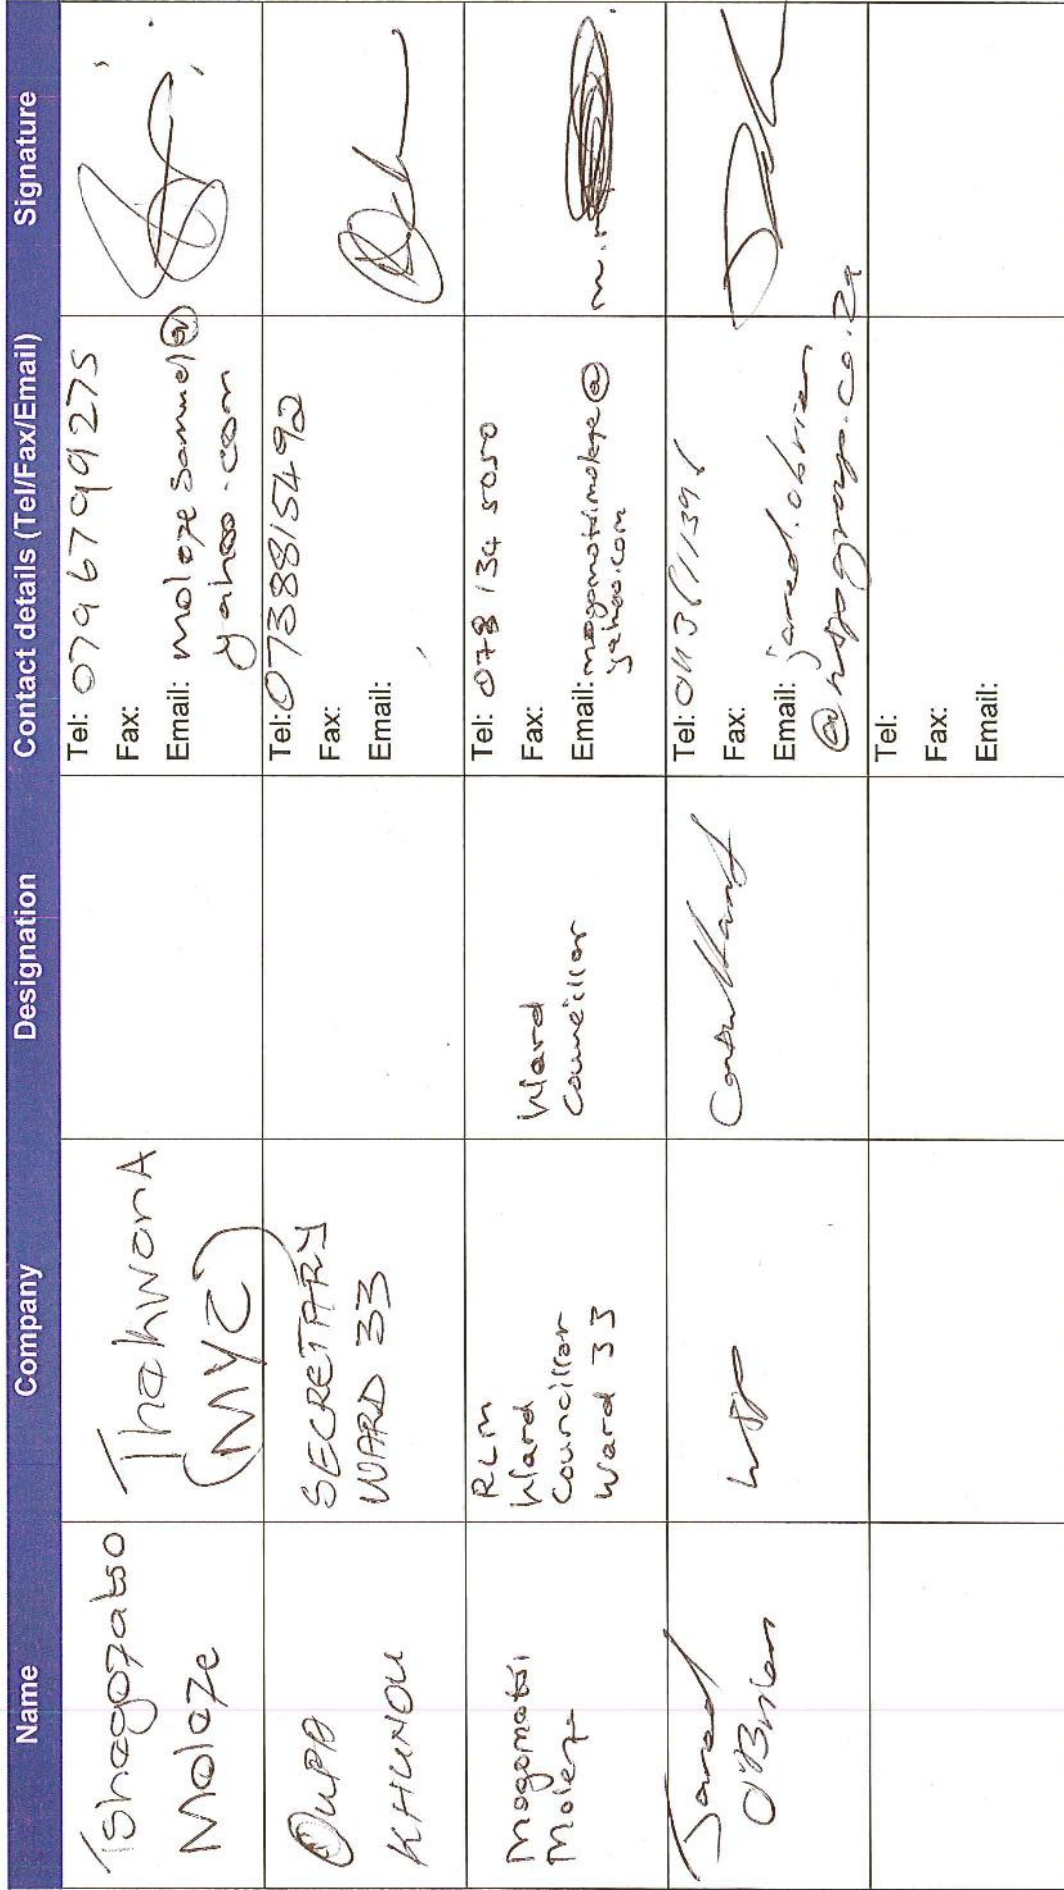 Name Company Designation Contact details (Tel/Fax/Email) Signature
Tshegofatso
Moloze
ThekwanA
(MYC)
Tel: 0796799275
Fax:
Email: moloze Samuel@
yahoo.com
OUPA
KHUNOU
SECRETARY
WARD 33
Tel: 0738815492
Fax:
Email:
Mogomotsi
Moleze
RLM
Ward
Councillor
Ward 33
Ward
Councillor
Tel: 078 134 5050
Fax:
Email:
yahoo.com
Jared
O'Brien
WSP
Consultant
Tel:
Fax:
Email: jared.obrien
@wspgroup.co.za
Tel:
Fax:
Email: